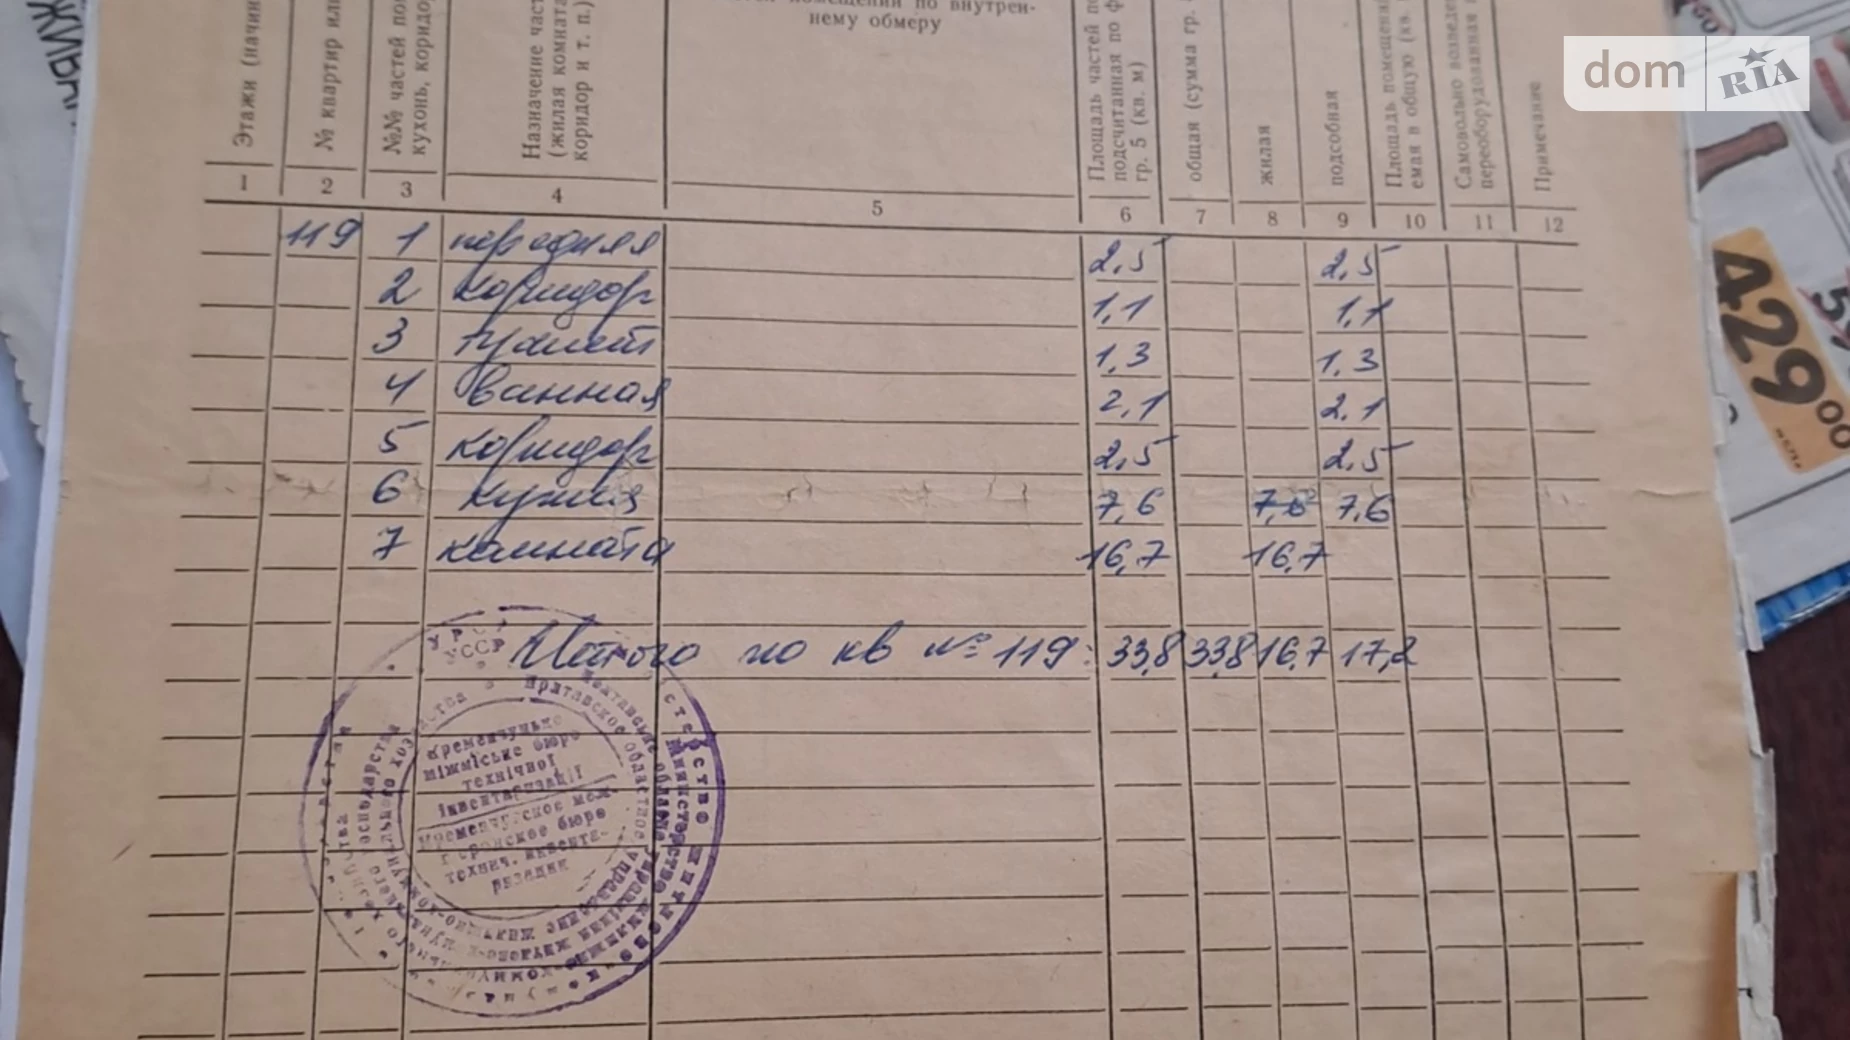 dom RIA
нему обмеру
Этажи (начин
№ квартир или
№№ частей по
кухонь, коридор
Назначение част
(жилая комната
коридор и т. п.)
Площадь частей по
подсчитанная по ф
гр. 5 (кв. м)
общая (сумма гр.
жилая
подсобная
Площадь помещени
емая в общую (кв.
Самовольно возведе
переоборудованная
Примечание
1 2 3 4 5 6 7 8 9 10 11 12
119 1 передняя 2,5 2,5
2 коридор 1,1 1,1
3 туалет 1,3 1,3
4 ванная 2,1 2,1
5 коридор 2,5 2,5
6 кухня 7,6 7,6 7,6
7 комната 16,7 16,7
Итого по кв № 119: 33,8 33,8 16,7 17,2
УРСР
УССР
Кременчуцьке
міжміське бюро
технічної
інвентаризації
Кременчугское меж-
городское бюро
технич. инвента-
ризации
429 00